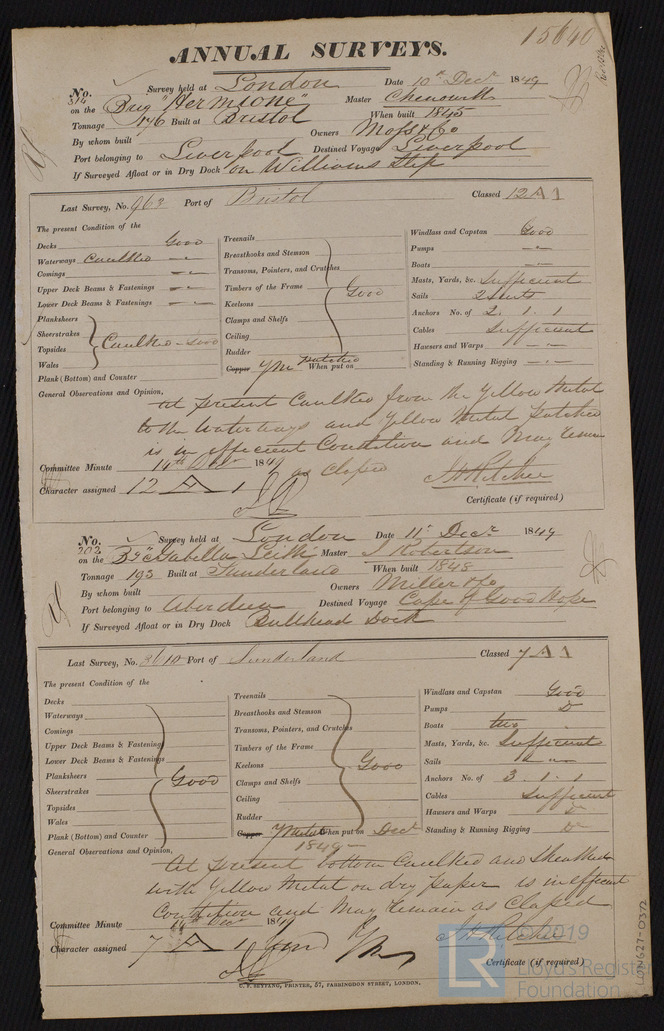 15640
ANNUAL SURVEYS.
No. 314 Survey held at London Date 10th Decr. 1849
on the Brig "Hermione" Master Chenowith
Tonnage 176 Built at Bristol When built 1845
By whom built Owners Moss & Co
Port belonging to Liverpool Destined Voyage Liverpool
If Surveyed Afloat or in Dry Dock on Williams Slip
Last Survey, No. 963 Port of Bristol Classed 12 A 1
The present Condition of the
Decks Good
Waterways Caulked
Comings
Upper Deck Beams & Fastenings
Lower Deck Beams & Fastenings
Planksheers
Sheerstrakes
Topsides Caulked - Good
Wales
Plank (Bottom) and Counter
Treenails
Breasthooks and Stemson
Transoms, Pointers, and Crutches
Timbers of the Frame Good
Keelsons
Clamps and Shelfs
Ceiling
Rudder
Copper YM patched When put on
Windlass and Capstan Good
Pumps
Boats
Masts, Yards, &c. Sufficient
Sails 2 Suits
Anchors No. of 2. 1. 1
Cables Sufficient
Hawsers and Warps
Standing & Running Rigging
General Observations and Opinion,
At present Caulked from the Yellow Metal
to the Waterways and Yellow Metal patched
is in efficient Condition and May remain
as Classed
Committee Minute 14th Decr 1849
Character assigned 12 A 1
Certificate (if required)
No. 202 Survey held at London Date 11th Decr. 1849
on the Isabella Leith Master J Robertson
Tonnage 195 Built at Sunderland When built 1848
By whom built Owners Miller & Co
Port belonging to Aberdeen Destined Voyage Cape of Good Hope
If Surveyed Afloat or in Dry Dock Bullhead Dock
Last Survey, No. 3610 Port of Sunderland Classed 7 A 1
The present Condition of the
Decks
Waterways
Comings
Upper Deck Beams & Fastenings
Lower Deck Beams & Fastenings
Planksheers Good
Sheerstrakes
Topsides
Wales
Plank (Bottom) and Counter
Treenails
Breasthooks and Stemson
Transoms, Pointers, and Crutches
Timbers of the Frame
Keelsons Good
Clamps and Shelfs
Ceiling
Rudder
Copper YMetal When put on Decr
1849
Windlass and Capstan Good
Pumps Do
Boats two
Masts, Yards, &c. Sufficient
Sails
Anchors No. of 3. 1. 1
Cables Sufficient
Hawsers and Warps Do
Standing & Running Rigging Do
General Observations and Opinion,
At present bottom Caulked and Sheathed
with Yellow Metal on dry paper is in efficient
Condition and May remain as Classed
Committee Minute 14th Decr 1849
Character assigned 7 A 1
Certificate (if required)
C. F. SEYFANG, PRINTER, 57, FARRINGDON STREET, LONDON.
LON627-0372
LR
© 2019
Lloyd's Register
Foundation